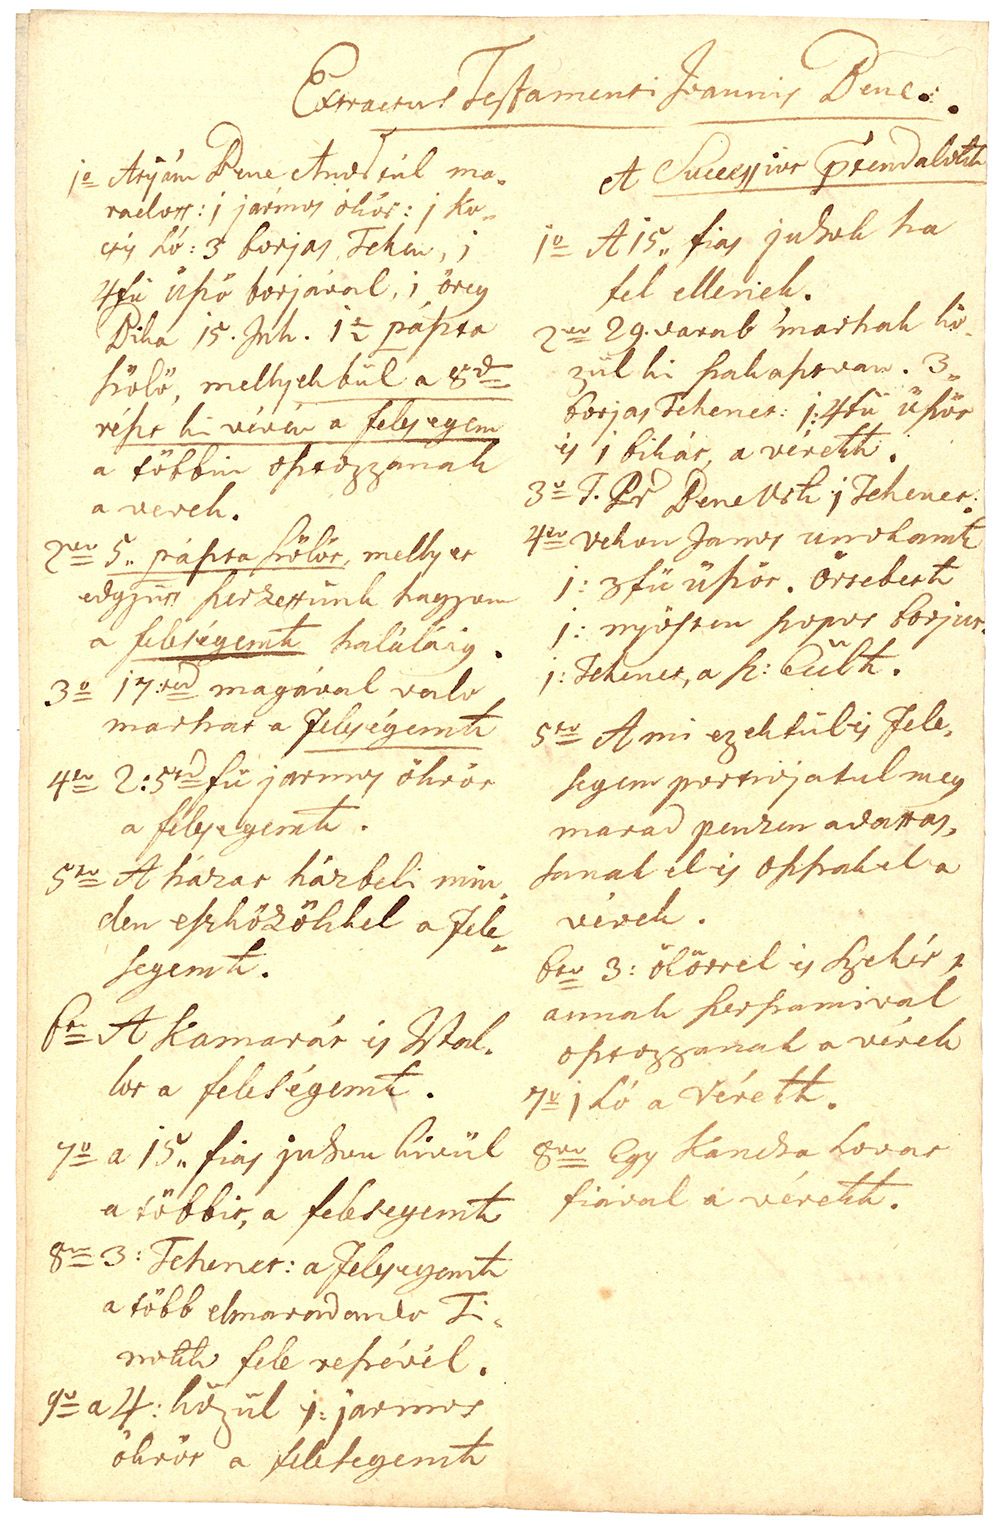 Extractus Testamenti Joannis Bene.
1o Atyám Bene Andrástúl ma-
radott: 1 jármos ökör: 1 ko-
csis Ló: 3 borjas Tehen, 1
4fü üsző borjával, 1 öreg
Bika 15. Juh. 1½ pászta
szőlö, mellyekbül a 8d
részt ki vévén a feleségem
a többin osztozzanak
a verek.
2do 5. pászta szőlőt, mellyet
edgyütt szerzettünk hagyom
a feleségemk haláláig.
3o 17.ed magával való
marhat a Feleségemk
4to 2: 5öd fü jarmos ökröt
a feleségemk.
5to A házat házbeli min-
den eszközökkel a Fele-
segemk.
6to A Kamarát is
a feleségemk.
7o a 15. fias juhon kivül
a többit, a felesegemk
8vo 3: Tehenet: a Felesegemk
a több elmaradando Ti-
nokk fele reszével.
9o a 4: közül 1: jarmos
ökröt a felesegemk
A Successiot
1o A 15. fias juhok ha
fel ellenek.
2do 29. varab marhak kö-
zül ki szakasztvan. 3.
borjas Tehenet: 1: 4fü üszöt
is 1 bikát, a vérekk.
3o T. Pr Bene Urk 1 Tehenet:
4to Vekon Janos unokamk
1: 3fü üszöt. Örsebetk
1: nyösten szopos borjut.
1: Tehenet, a
5to A mi ezektülis Fele-
segem portiojatul meg
marad penzen adattas-
sanak el is oszszak el a
vérek.
6to 3: ökörrel is Szekér,
annak szerszamival
osztozzanak a vérek
7o 1 Ló a Vérekk.
8vo Egy Kancza Lovat
fiával a vérekk.